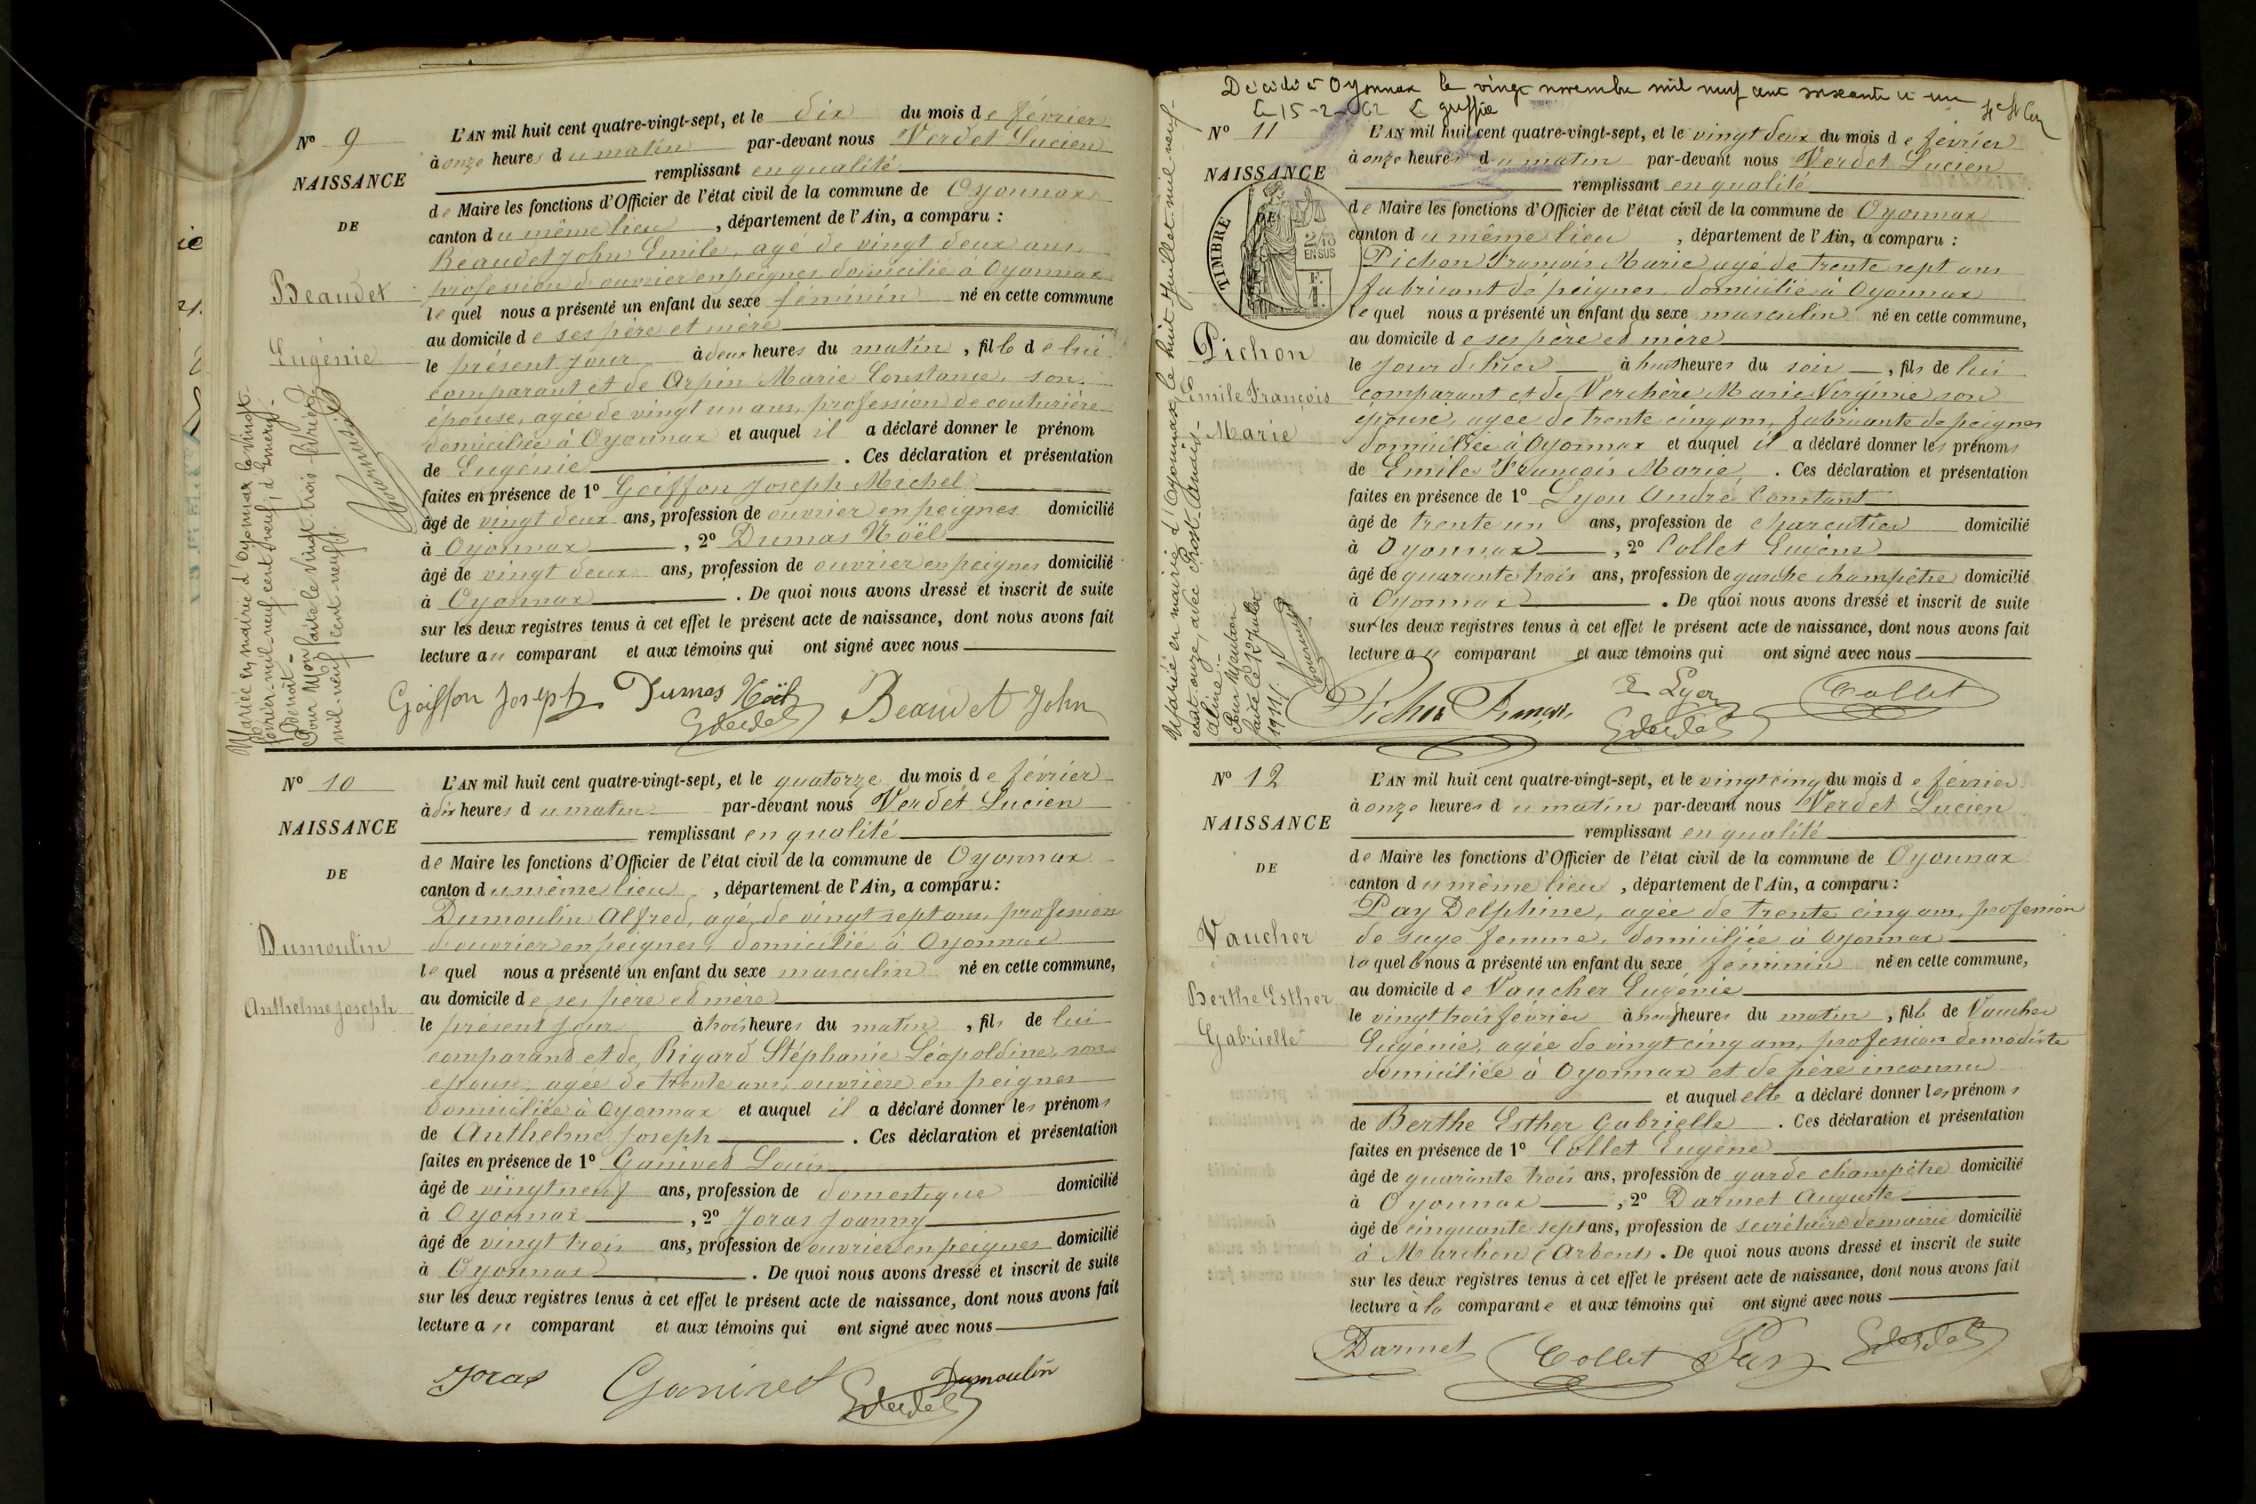 N° 9
NAISSANCE
DE
Beaudet
Eugénie
Mariée en mairie d'Oyonnax le vingt-
février mil neuf cent neuf, à Emery
Benoît.
Pour Mon faite le vingt trois février
mil neuf cent neuf.
L'AN mil huit cent quatre-vingt-sept, et le dix du mois de février
à onze heures du matin par-devant nous Verdet Lucien
remplissant en qualité
de Maire les fonctions d'Officier de l'état civil de la commune de Oyonnax
canton du même lieu , département de l'Ain, a comparu :
Beaudet John Emile, agé de vingt deux ans,
profession d'ouvrier en peignes domicilié à Oyonnax
lequel nous a présenté un enfant du sexe féminin né en cette commune
au domicile de ses père et mère
le présent jour à deux heures du matin , fille de lui
comparant et de Arpin Marie Constance, son
épouse, agée de vingt un ans, profession de couturière
domiciliée à Oyonnax et auquel il a déclaré donner le prénom
de Eugénie . Ces déclaration et présentation
faites en présence de 1° Goiffon Joseph Michel
âgé de vingt deux ans, profession de ouvrier en peignes domicilié
à Oyonnax , 2° Dumas Noël
âgé de vingt deux ans, profession de ouvrier en peignes domicilié
à Oyonnax . De quoi nous avons dressé et inscrit de suite
sur les deux registres tenus à cet effet le présent acte de naissance, dont nous avons fait
lecture au comparant et aux témoins qui ont signé avec nous
Goiffon Joseph Dumas Noël Beaudet John
Verdet
N° 10
NAISSANCE
DE
Dumoulin
Anthelme Joseph
L'AN mil huit cent quatre-vingt-sept, et le quatorze du mois de février
à dix heures du matin par-devant nous Verdet Lucien
remplissant en qualité
de Maire les fonctions d'Officier de l'état civil de la commune de Oyonnax
canton du même lieu , département de l'Ain, a comparu :
Dumoulin Alfred, agé de vingt sept ans, profession
d'ouvrier en peignes, domicilié à Oyonnax
lequel nous a présenté un enfant du sexe masculin né en cette commune,
au domicile de ses père et mère
le présent jour à trois heures du matin , fils de lui
comparant et de Rigard Stéphanie Léopoldine, son
épouse, agée de trente ans, ouvrière en peignes
domiciliée à Oyonnax et auquel il a déclaré donner les prénoms
de Anthelme Joseph . Ces déclaration et présentation
faites en présence de 1° Ganivet Louis
âgé de vingt neuf ans, profession de domestique domicilié
à Oyonnax , 2° Joras Joanny
âgé de vingt trois ans, profession de ouvrier en peignes domicilié
à Oyonnax . De quoi nous avons dressé et inscrit de suite
sur les deux registres tenus à cet effet le présent acte de naissance, dont nous avons fait
lecture au comparant et aux témoins qui ont signé avec nous
Joras Ganivet Verdet Dumoulin
Décédé à Oyonnax le vingt novembre mil neuf cent soixante et un
Le 15-2-62 Le greffier
N° 11
NAISSANCE
DE
TIMBRE
2/10
EN SUS
Pichon
Emile François
Marie
Marié en mairie d'Oyonnax, le huit Juillet mil neuf-
cent onze, avec Prost
Aline.-
Pour Mention
faite le 12 Juillet
1911.
L'AN mil huit cent quatre-vingt-sept, et le vingt deux du mois de février
à onze heures du matin par-devant nous Verdet Lucien
remplissant en qualité
de Maire les fonctions d'Officier de l'état civil de la commune de Oyonnax
canton du même lieu , département de l'Ain, a comparu :
Pichon François Marie agé de trente sept ans
fabricant de peignes domicilié à Oyonnax
lequel nous a présenté un enfant du sexe masculin né en cette commune,
au domicile de ses père et mère
le jour d'hier à huit heures du soir , fils de lui
comparant et de Verchère Marie Virginie son
épouse, agée de trente cinq ans, fabricante de peignes
domiciliée à Oyonnax et auquel il a déclaré donner les prénoms
de Emile François Marie . Ces déclaration et présentation
faites en présence de 1° Lyon André Constant
âgé de trente un ans, profession de charcutier domicilié
à Oyonnax , 2° Collet Eugène
âgé de quarante trois ans, profession de garde champêtre domicilié
à Oyonnax . De quoi nous avons dressé et inscrit de suite
sur les deux registres tenus à cet effet le présent acte de naissance, dont nous avons fait
lecture au comparant et aux témoins qui ont signé avec nous
Pichon François Lyon Collet
Verdet
N° 12
NAISSANCE
DE
Vaucher
Berthe Esther
Gabrielle
L'AN mil huit cent quatre-vingt-sept, et le vingt cinq du mois de février
à onze heures du matin par-devant nous Verdet Lucien
remplissant en qualité
de Maire les fonctions d'Officier de l'état civil de la commune de Oyonnax
canton du même lieu , département de l'Ain, a comparu :
Pay Delphine, agée de trente cinq ans, profession
de sage femme, domiciliée à Oyonnax
laquelle nous a présenté un enfant du sexe féminin né en cette commune,
au domicile de Vaucher Eugénie
le vingt trois février à neuf heures du matin , fille de Vaucher
Eugénie, agée de vingt cinq ans, profession de modiste
domiciliée à Oyonnax et de père inconnu
et auquel elle a déclaré donner les prénoms
de Berthe Esther Gabrielle . Ces déclaration et présentation
faites en présence de 1° Collet Eugène
âgé de quarante trois ans, profession de garde champêtre domicilié
à Oyonnax , 2° Darmet Auguste
âgé de cinquante sept ans, profession de secrétaire de mairie domicilié
à Marchon (Arbent) . De quoi nous avons dressé et inscrit de suite
sur les deux registres tenus à cet effet le présent acte de naissance, dont nous avons fait
lecture à la comparante et aux témoins qui ont signé avec nous
Darmet Collet Pay Verdet